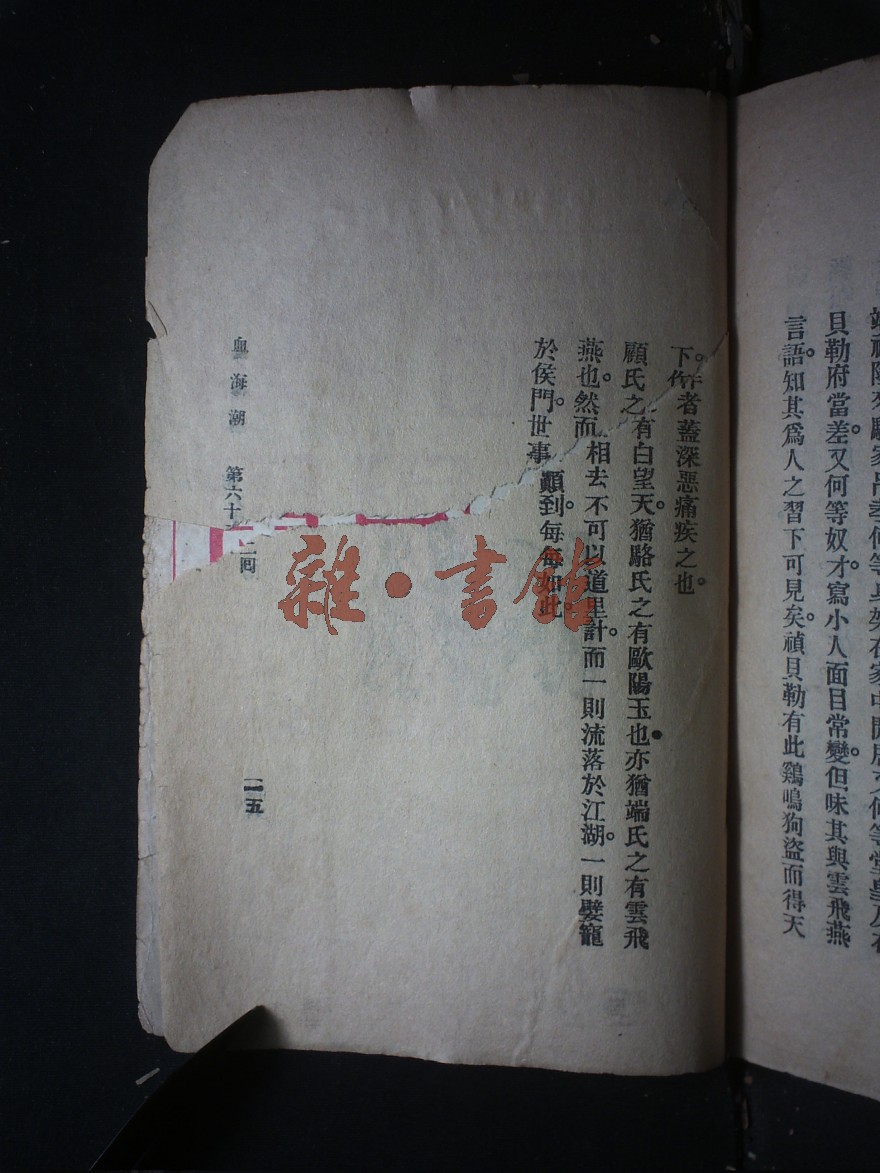 貝勒府當差。又何等奴才。寫小人面目常變。但味其與雲飛燕
言語。知其爲人之習下可見矣。禎貝勒有此鷄鳴狗盜而得天
下。作者蓋深惡痛疾之也。
顧氏之有白望天。猶駱氏之有歐陽玉也。亦猶端氏之有雲飛
燕也。然而相去不可以道里計。而一則流落於江湖。一則嬖寵
於侯門。世事顚到。每每如此。
血海潮 第六十二回
二五
雜·書館